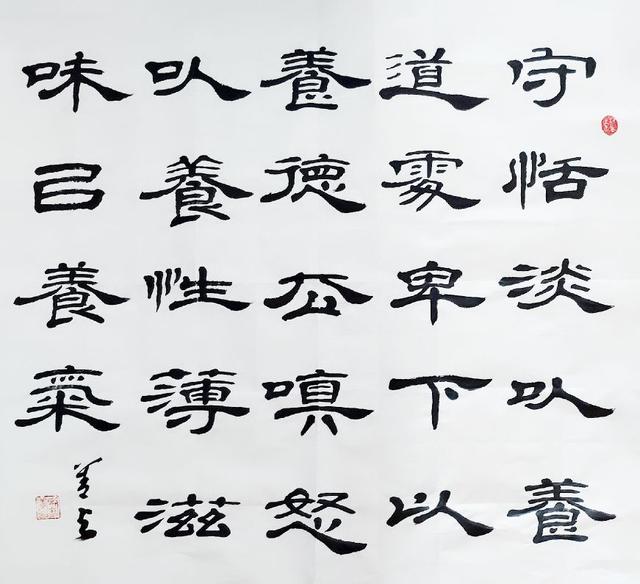 守恬淡以養
道處卑下以
養德去嗔怒
以養性薄滋
味以養氣